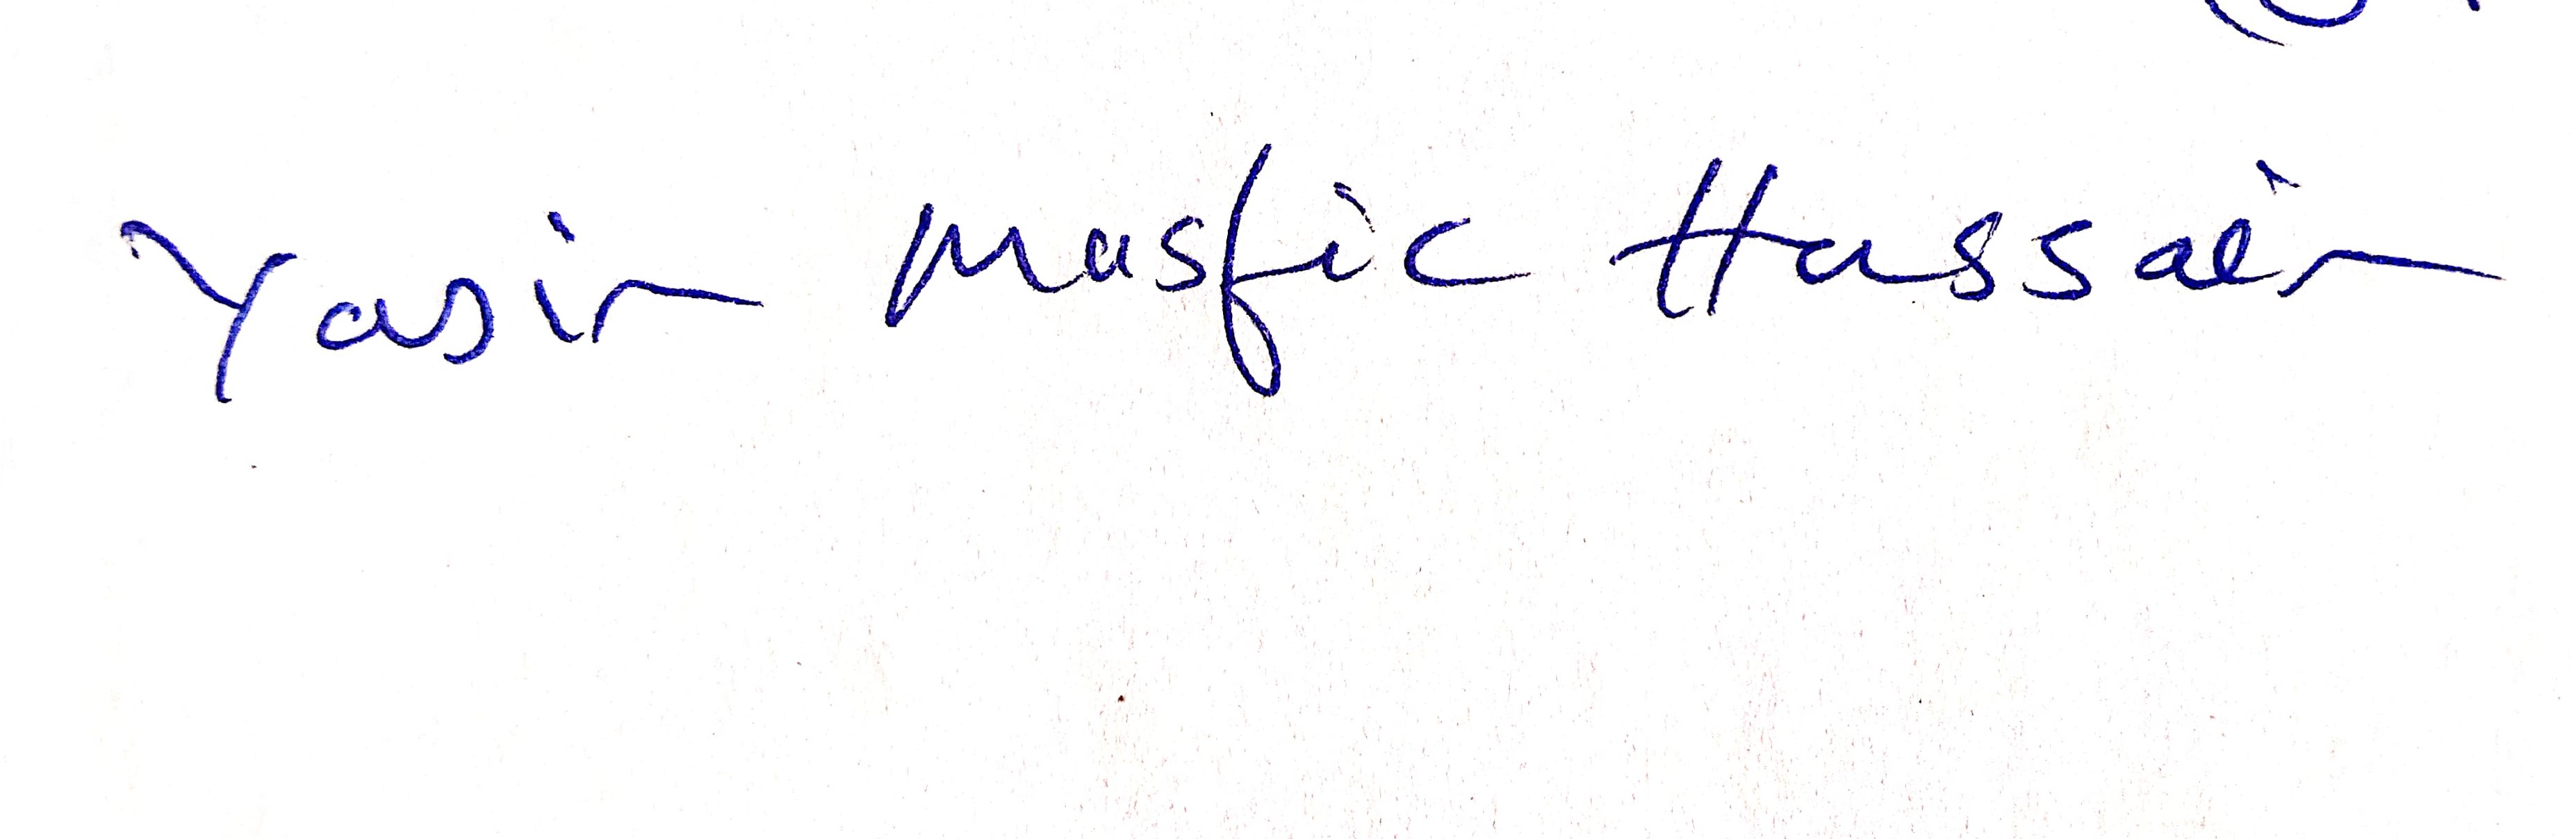 Yasir Masfic Hussain